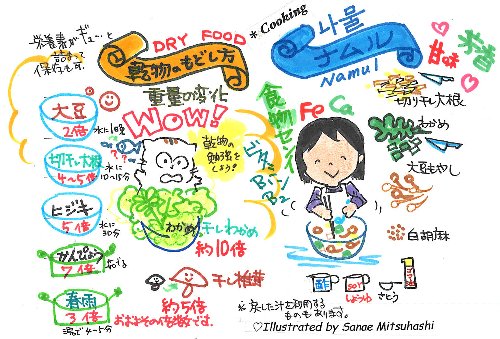 栄養素がギューッと
詰まって
保存もOK.
DRY FOOD
乾物のもどし方
重量の変化
WOW!
大豆
2倍
水に1晩
切り干し大根
4〜5倍
水に
10〜15分
ヒジキ
5倍
水に
30分
かんぴょう
7倍
ゆでる
春雨
3倍
湯で4〜5分
乾物の
勉強を
しよう!
わかめ
干しわかめ
約10倍
干し椎茸
約5倍
おおよその倍数です。
* Cooking
나물
ナムル
Namul
食物センイ
ビタミン
B1
B2
Fe Ca
甘味
切り干し大根
わかめ
大豆もやし
白胡麻
酢
soy
しょうゆ
さとう
*戻した汁を利用する
ものもあります。
♡Illustrated by Sanae Mitsuhashi